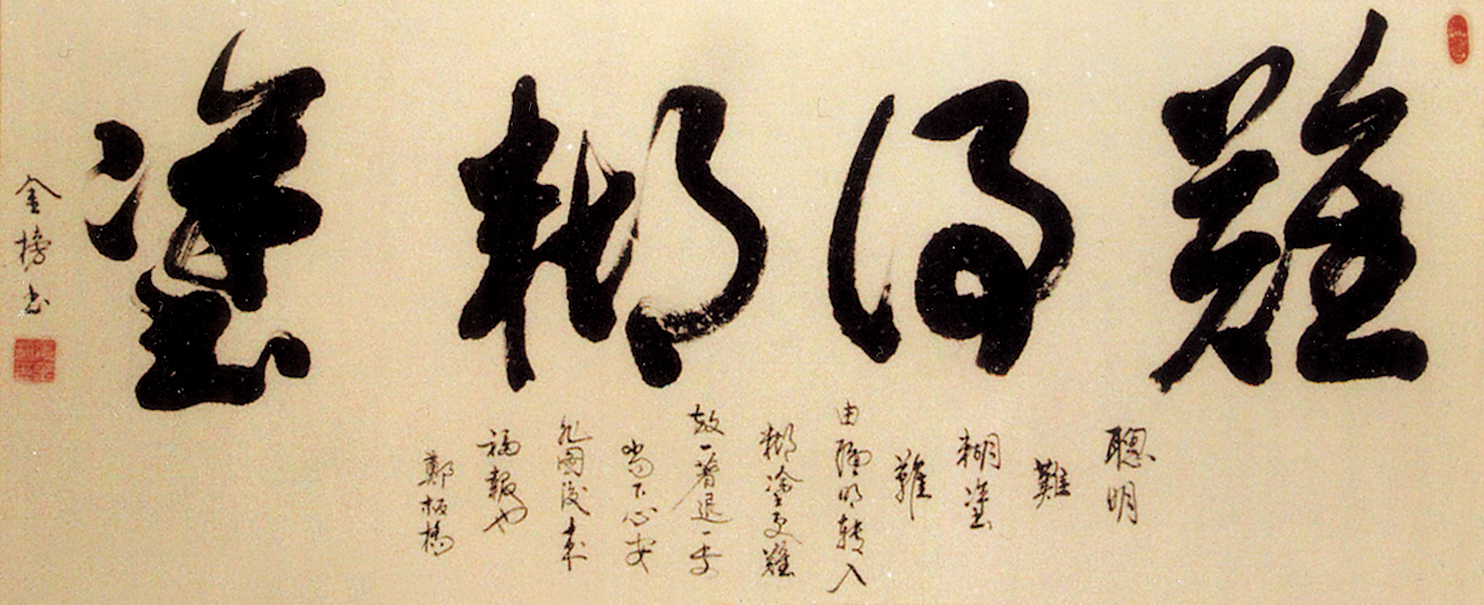 難得糊塗
聰明
難
糊塗
難
由聰明轉入
糊塗更難
放一著退一步
當下心安
非圖後來
福報也
鄭板橋
金榜书